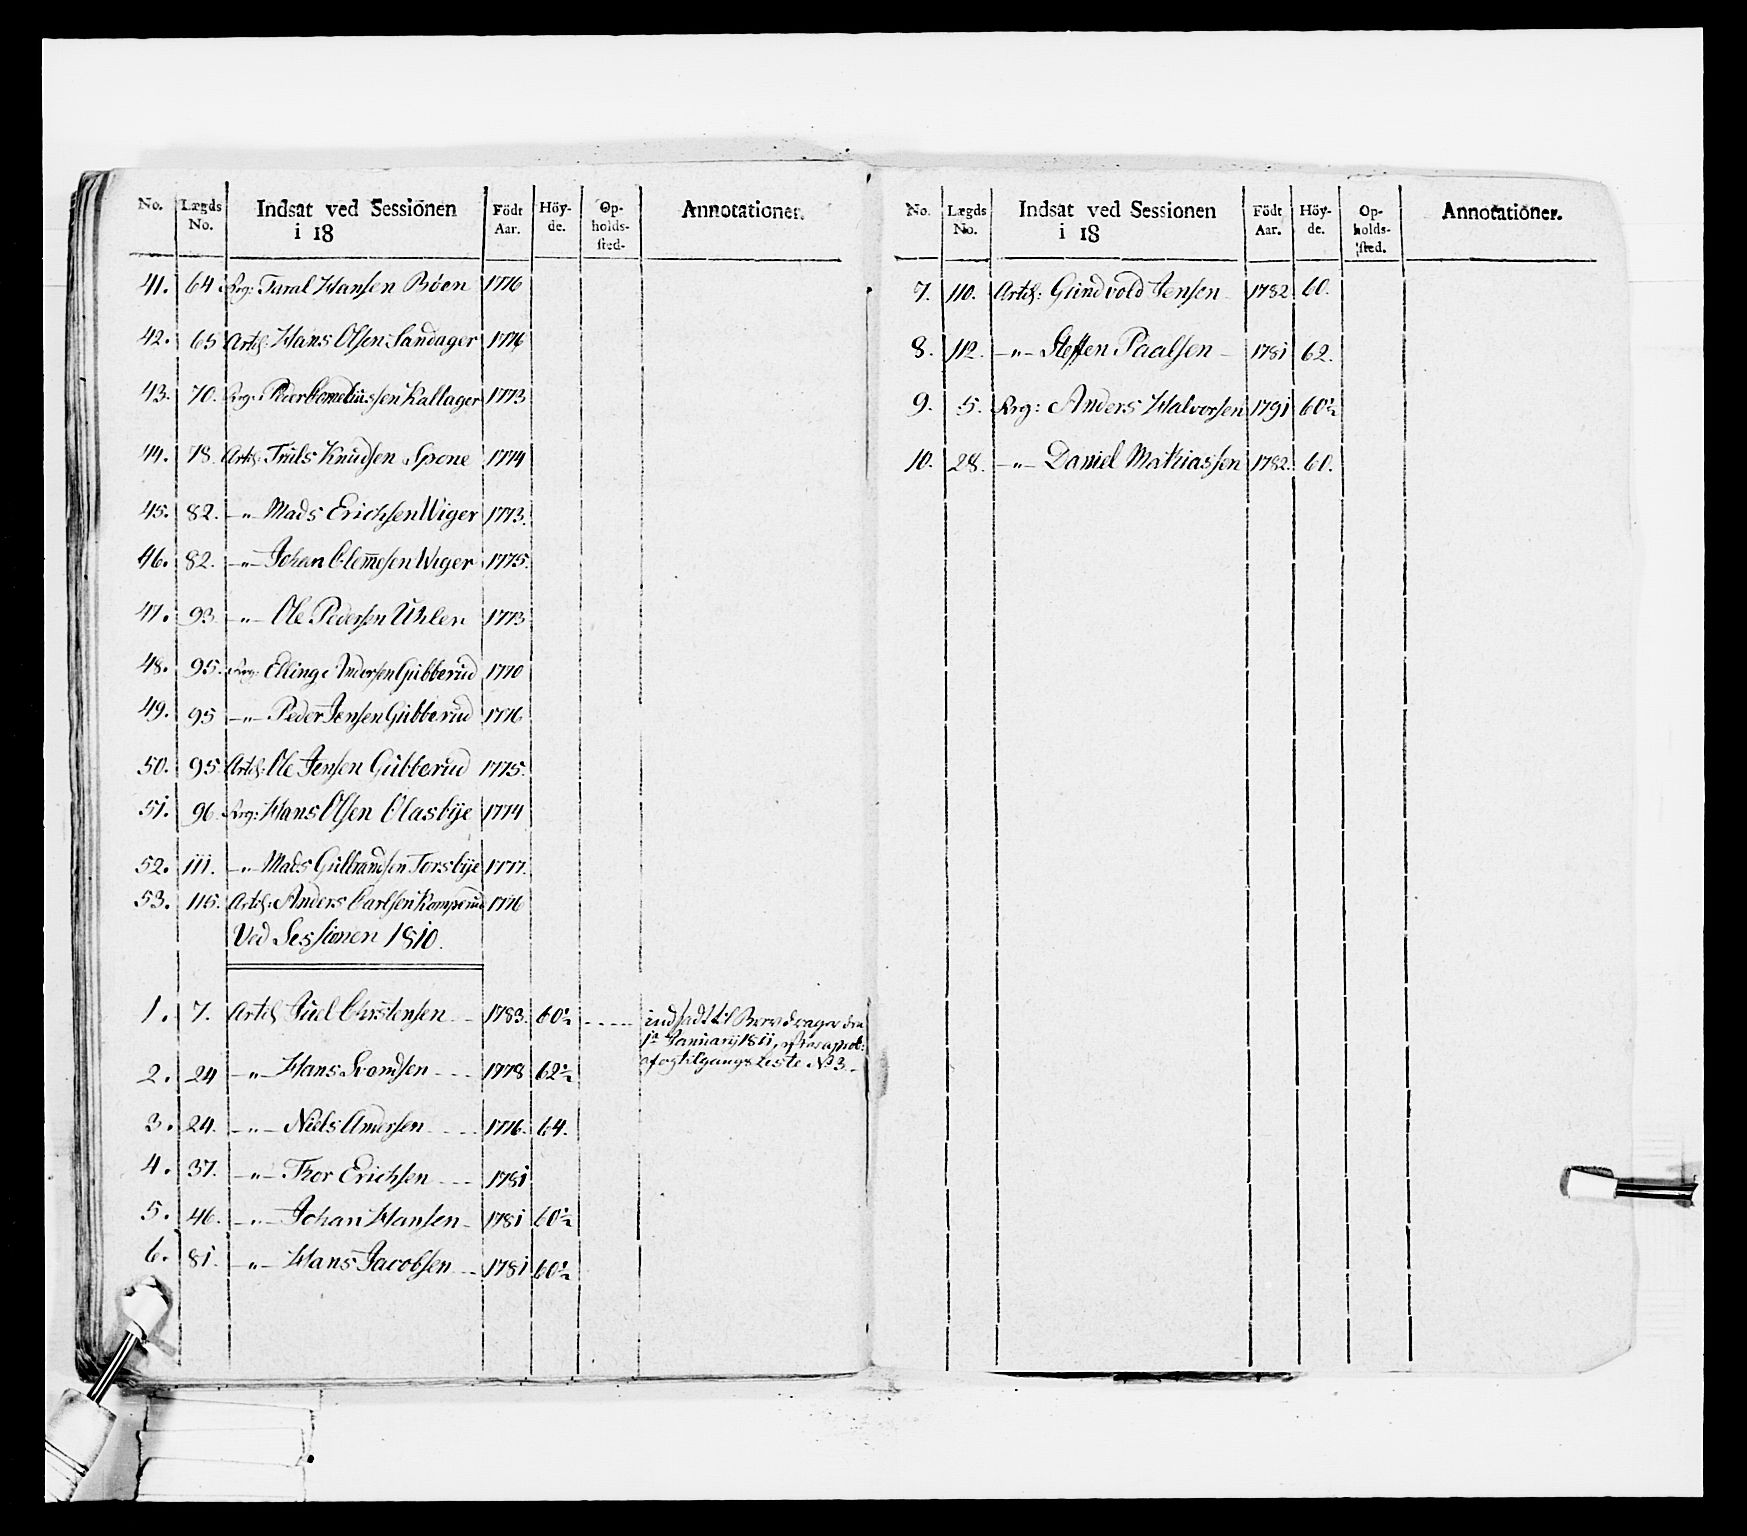 No. Lægds No. Indsat ved Sessionen i 18 Födt Aar. Höy-de. Op-holds-sted. Annotationer.
41. 64 Rrg: Tural Hansen Böen 1776
42. 65 Artl: Hans Olsen Sandager 1776
43. 70. Rrg: Peder Corneliussen Kallager 1773
44. 78. Artl: Truls Knudsen Spone 1774
45. 82. —"— Mads Erichsen Wiger 1773.
46. 82. —"— Johan Clem̅esen Wiger 1775.
47. 93 —"— Ole Pedersen Uhlen 1773
48. 95. Rrg: Elling Andersen Gubberud 1770
49. 95 —"— Peder Jensen Gubberud 1776
50. 95 Artl: Ole Jensen Gubberud 1775.
51. 96 Rrg: Hans Olsen Olasbÿe 1774
52. 111. —"— Mads Gulbrandsen Torsbÿe 1777.
53. 115. Artl: Anders Carlsen Komperud 1776
Ved Sessionen 1810.
1. 7. Artl Juel Christensen 1783. 60½ indsadt til Bervdrager den
1ste Januarÿ 1811,
af og tilgangs Liste No 3.
2. 24 —"— Hans Svendsen 1778 62½
3. 24. —"— Niels Andersen 1776. 64.
4. 37. —"— Thor Erichsen 1781
5. 46. —"— Johan Hansen 1781 60½
6. 81. —"— Hans Jacobsen 1781 60½
No. Lægds No. Indsat ved Sessionen i 18 Födt Aar. Höy-de. Op-holds-sted. Annotationer.
7. 110. Artl: Gundvold Jensen 1782 60.
8. 112. —"— Steffen Paalsen 1781 62.
9. 5. Rrg: Anders Halvorsen 1791 60½
10. 28. —"— Daniel Mathiassen 1782. 60.